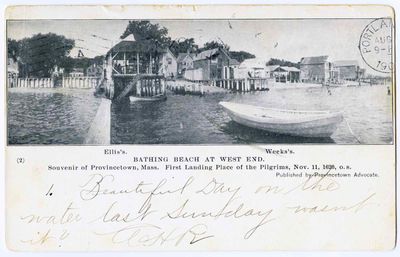 PORTLA
AUG
9-
190
Ellis's. Weeks's.
BATHING BEACH AT WEST END.
(2) Souvenir of Provincetown, Mass. First Landing Place of the Pilgrims, Nov. 11, 1620, o.s.
Published by Provincetown Advocate.
1. Beautiful Day on the
water last Sunday wasn't
it? A.H.R.